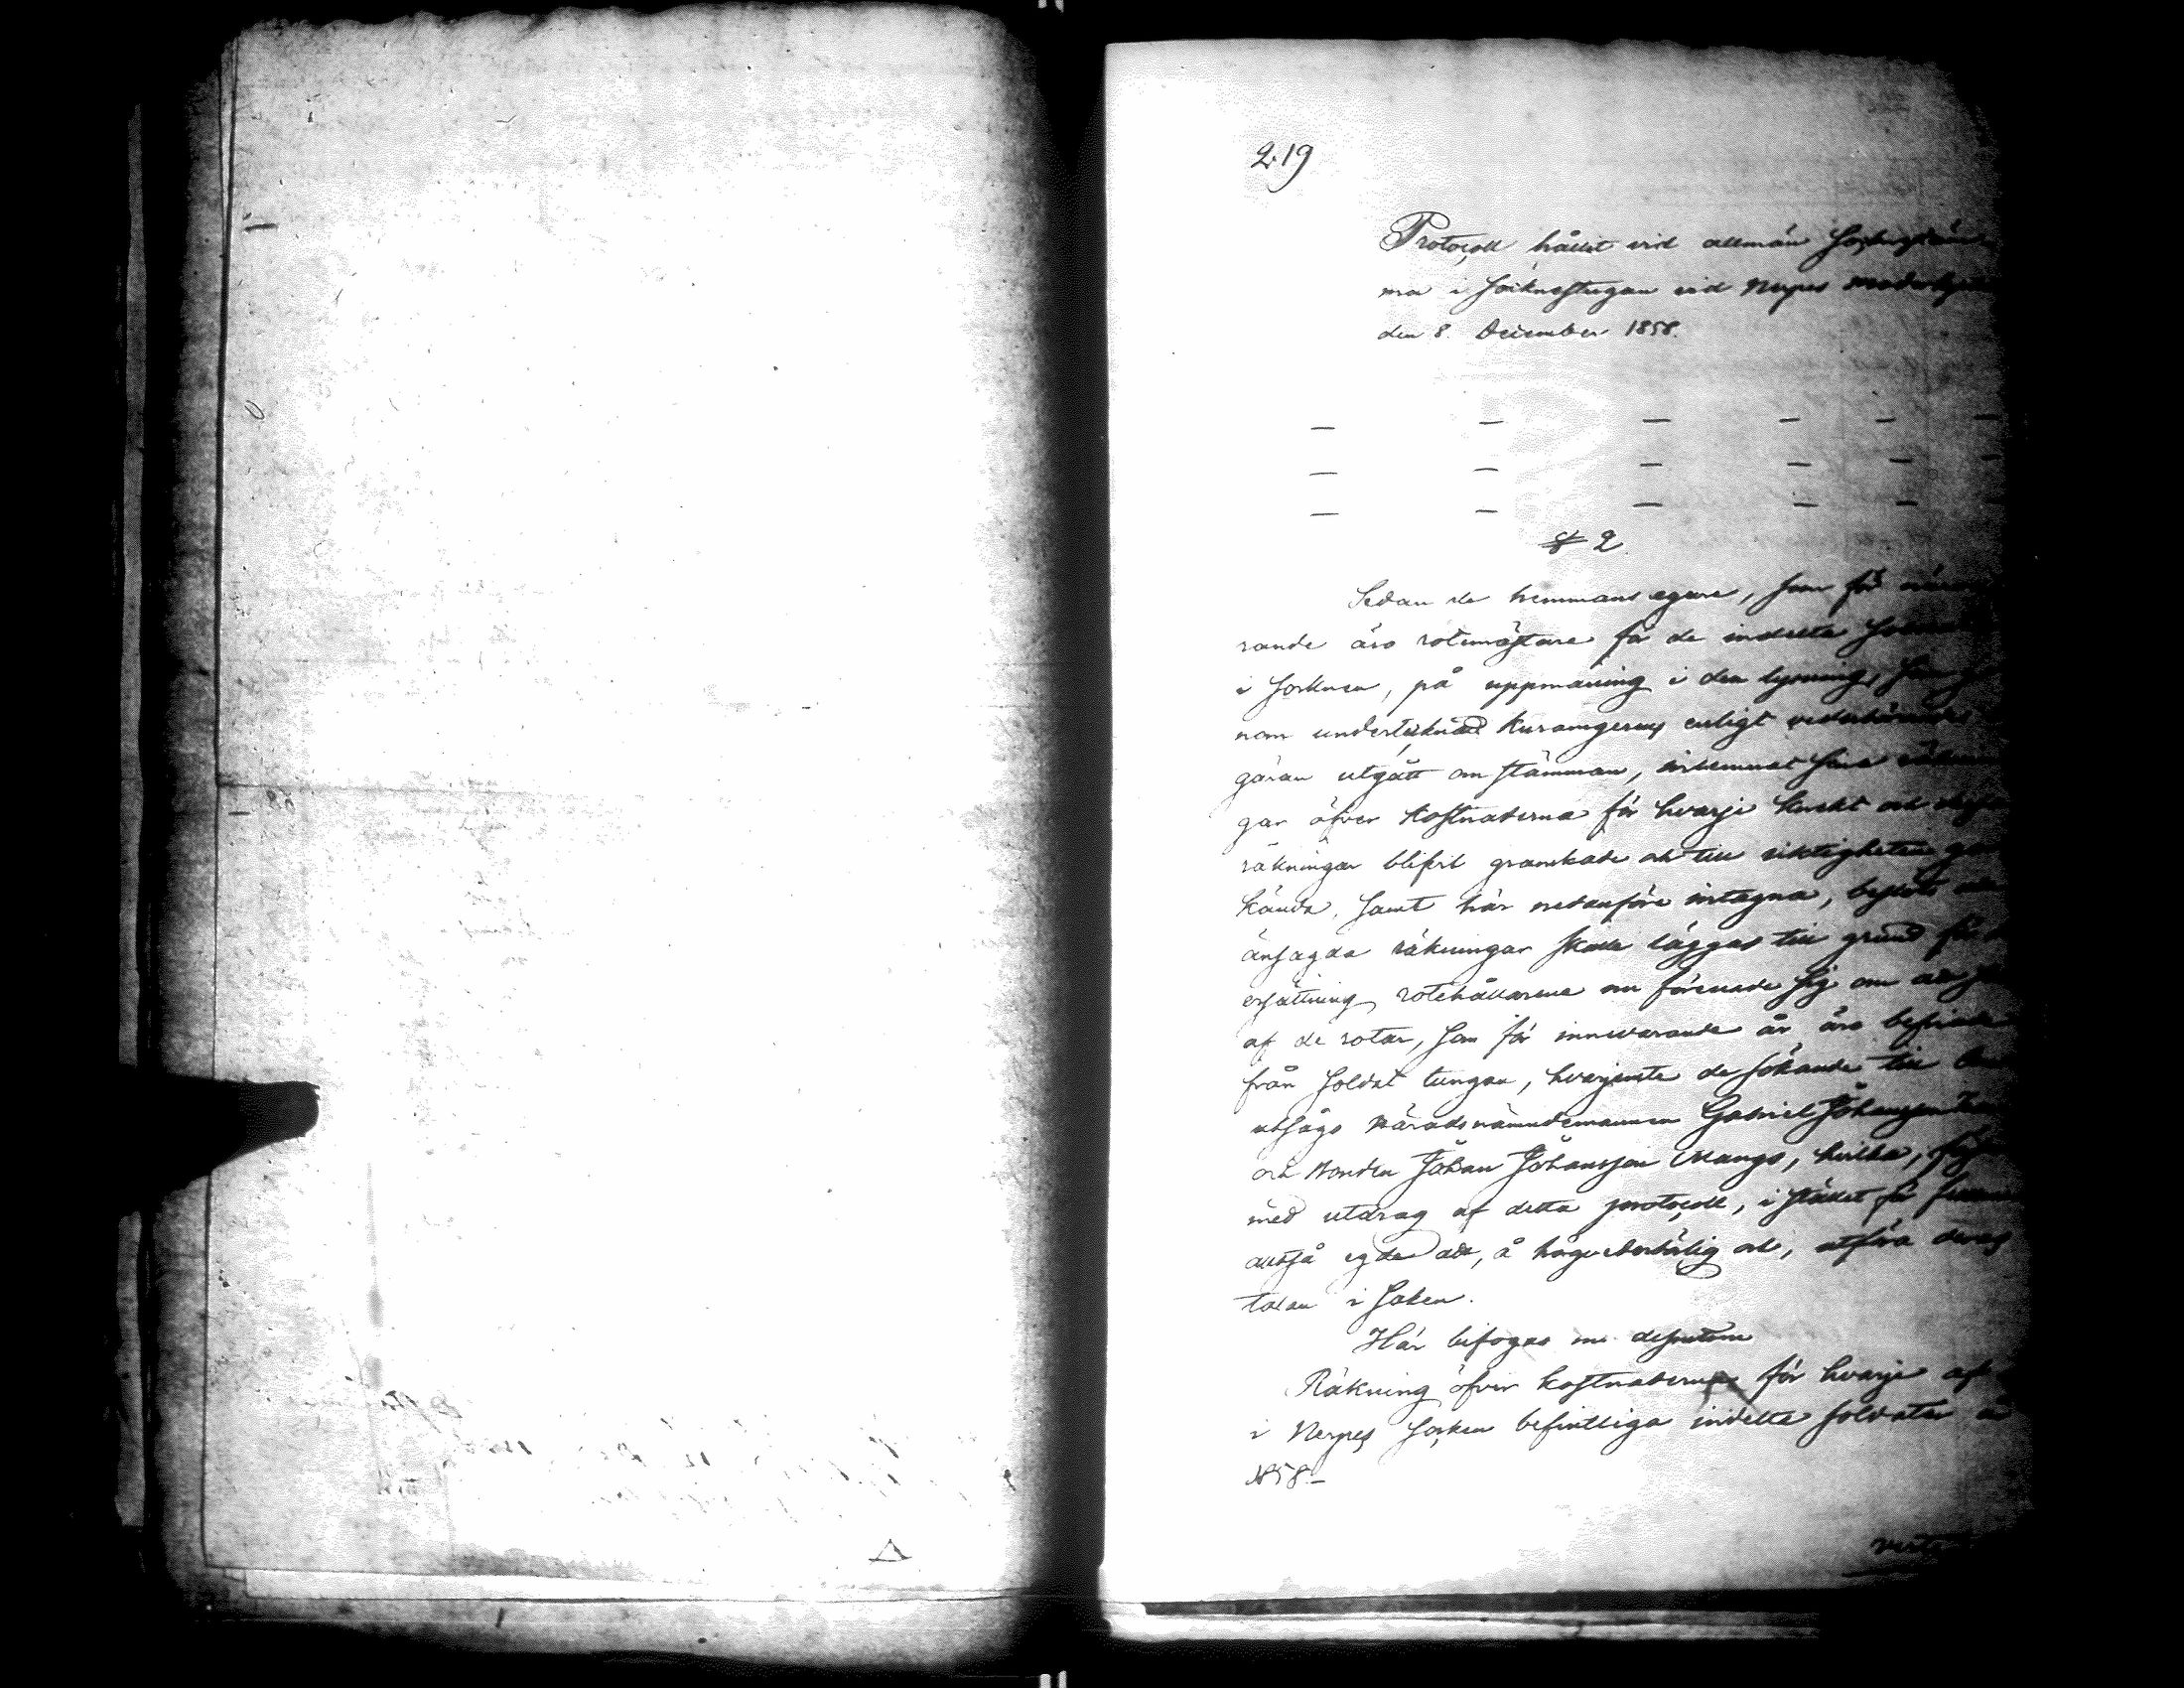 219
Protocoll hållit vid allmän Sockenstäm
ma i Socknestugan vid Nerpes moderkyrka
den 8. December 1858.
— — — — — —
— — — — — —
— — — — —
§ 2
Sedan de hemmans egare, som för närva
rande äro rotemästare för de indelta Soldater
i Socknen, på uppmaning i den lysning, som ge
nom undertecknad kunnigerus enligt vederbörandes
göran utgått om stämman, inlemnat sina räknin
gar öfver kostnaderna för hvarje knekt och dessa
räkningar blifvit granskade och till riktigheten god
kända, samt här nedanföre intagna, beslöts att
ånsagda räkningar skola läggas till grund för
ersättning rotehållarene nu förenade sig om att
af de rotar, som för innevarande år äro befriade
från Soldat tungan, hvarjemte de sökande till
utsågo Häradsnämndemannen Gabriel Johansson
och Bonden Johan Johansson Mangs, hvilka,
med utdrag af detta protocoll, i stället för
altså egde att, å högvederbörlig ort, utföra deras
talan i saken.
Här bifogas in desputom
Räkning öfver kostnaderna för hvarje af
i Nerpes Socken befintliga indelta soldater år
1858.–
verte